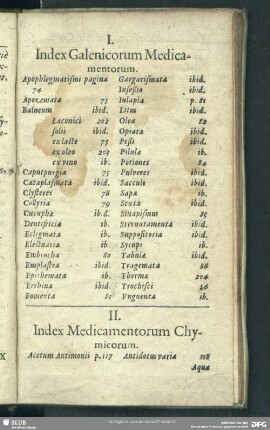 I.
Index Galenicorum Medica-
mentorum.
Apophlegmatismi pagina
74
Apozemata 75
Balneum ibid.
Laconici 202
solis ibid.
ex lacte 75
ex oleo 203
ex vino ib.
Capnepurgia 75
Cataplasmata ibid.
Clysteres 78
Collyria 79
Cucupha ib.d.
Dentifricia ib.
Eclegmata ib.
Electuaria ib.
Embrocha 80
Emplastra ibid.
Epithemata ib.
Errhina ibid.
Fomenta 81
Gargarismata ibid.
Insessio ibid.
Iulapia p. 81
Litus ibid.
Olea 82
Opiata ibid.
Pessi ibid.
Pilula ib.
Potiones 84
Pulveres ibid.
Sacculi ibid.
Sapa ib.
Scuta ibid.
Sinapismus 85
Sternutamenta ibid.
Suppositoria ibid.
Syrupi ib.
Tabula ibid.
Tragemata 86
Therma 204
Trochisci 26
Unguenta ib.
II.
Index Medicamentorum Chy-
micorum.
Acetum Antimonii p. 117 Antidotus varia 118
Aqua
SLUB
DFG